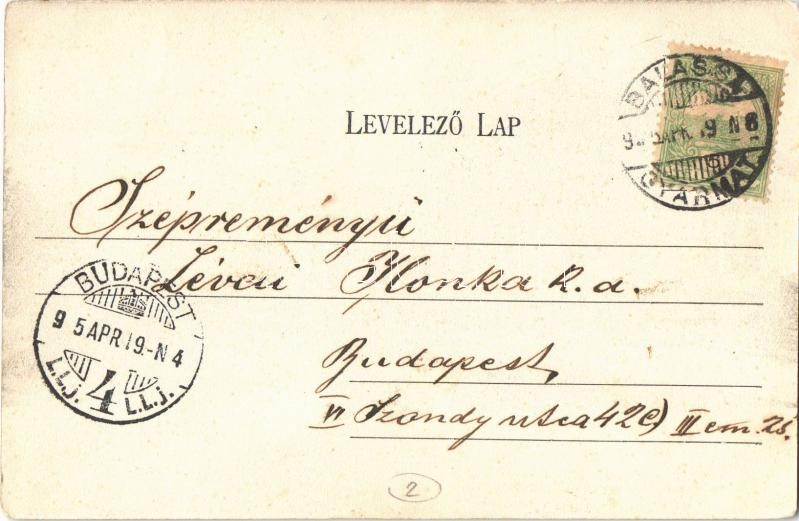 LEVELEZŐ LAP
BALASSA
9 5 APR 19 N 8
GYARMAT
Szépreményü
Lévai Ilonka k.a.
BUDAPEST
9 5 APR 19.-N 4
L.L.j. 4 L.L.j.
Budapest,
VI Szondy utca 42c) III em. 25.
2